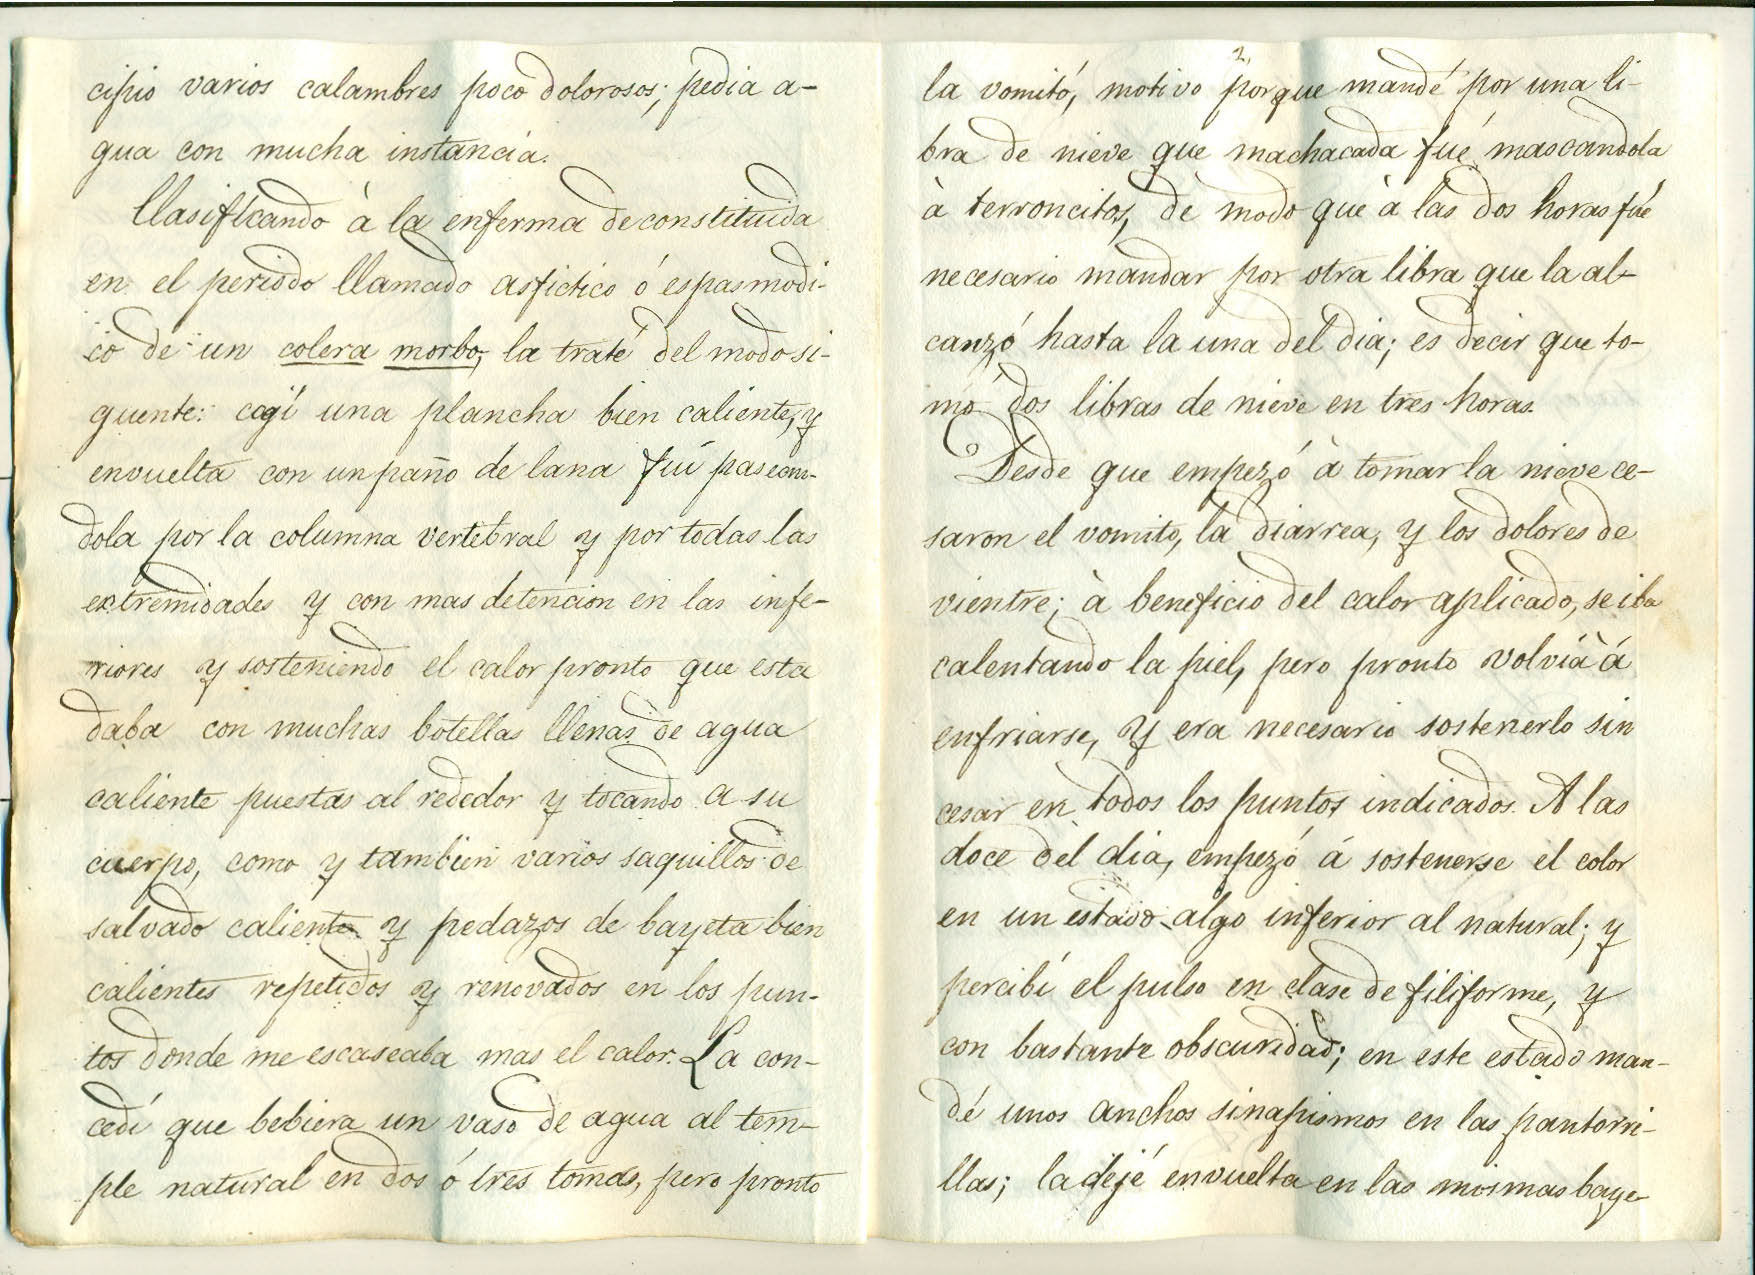 cipio varios calambres poco dolorosos; pedia a-
gua con mucha instancia.
Clasificando à la enferma de constituida
en el periodo llamado asfictico ó espasmodi-
co de un colera morbo, la traté del modo si-
guente: cogí una plancha bien caliente, y
envuelta con un paño de lana fuí pasean-
dola por la columna vertebral y por todas las
extremidades y con mas detencion en las infe-
riores y sosteniendo el calor pronto que esta
daba con muchas botellas llenas de agua
caliente puestas al rededor y tocando a su
cuerpo, como y tambien varios saquillos de
salvado caliente y pedazos de bayeta bien
calientes repetidos y renovados en los pun-
tos donde me escaseaba mas el calor. La con-
cedí que bebiera un vaso de agua al tem-
ple natural en dos ó tres tomas, pero pronto
2
la vomitó, motivo porque mandé por una li-
bra de nieve que machacada fué mascandola
à terroncitos, de modo que à las dos horas fué
necesario mandar por otra libra que la al-
canzó hasta la una del dia; es decir que to-
mó dos libras de nieve en tres horas.
Desde que empezó à tomar la nieve ce-
saron el vomito, la diarrea, y los dolores de
vientre; à beneficio del calor aplicado, se iba
calentando la piel, pero pronto volvia à
enfriarse, y era necesario sostenerlo sin
cesar en todos los puntos indicados. A las
doce del dia, empezó á sostenerse el color
en un estado algo inferior al natural; y
percibí el pulso en clase de filiforme, y
con bastante obscuridad; en este estado man-
dé unos anchos sinapismos en las pantorri-
llas; la dejé envuelta en las mismas baye-